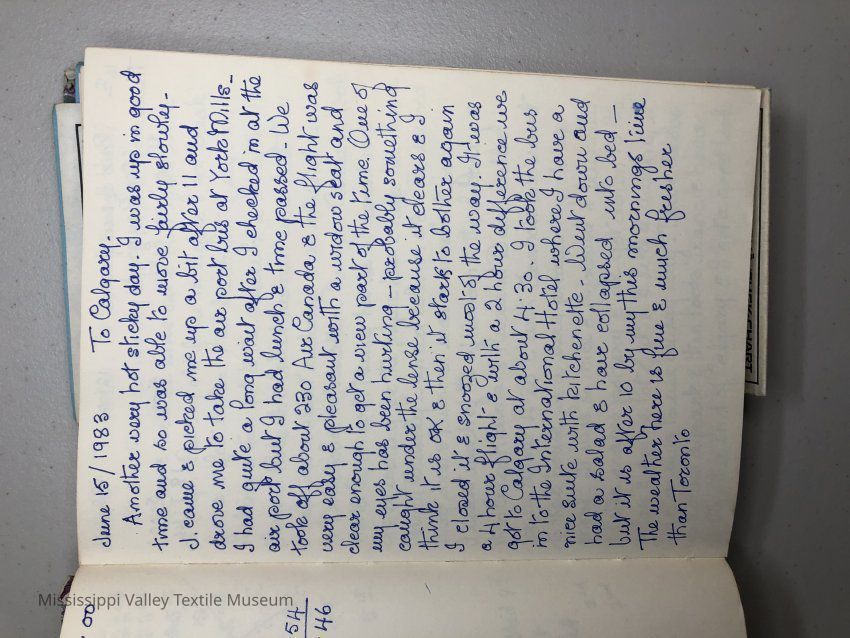 June 15/1983 To Calgary.
Another very hot sticky day. I was up in good
time and so was able to move fairly slowly-
J. came & picked me up a bit after 11 and
drove me to take the air port bus at York Mills-
I had quite a long wait after I checked in at the
air port but I had lunch & time passed - We
took off about 230 Air Canada & the flight was
very easy & pleasant with a widow seat and
clear enough to get a view part of the time. One of
my eyes has been hurting - probably something
caught under the lense because it clears & I
think it is OK & then it starts to bother again
I closed it & snoozed most of the way. It was
a 4 hour flight & with a 2 hour difference we
got to Calgary at about 4:30. I took the bus
in to the International Hotel where I have a
nice suite with kitchenette - Went down and
had a salad & have collapsed into bed -
but it is after 10 by my this mornings time
The weather here is fine & much fresher
than Toronto
00
54
46
Mississippi Valley Textile Museum